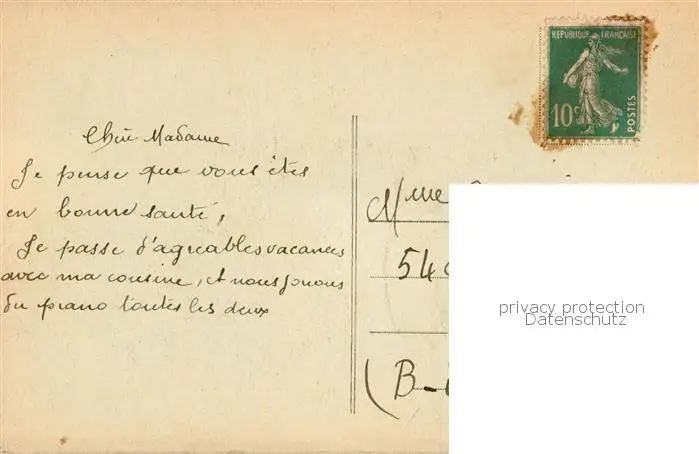 REPUBLIQUE FRANÇAISE
10c
POSTES
Chère Madame
Je pense que vous êtes
en bonne santé,
Je passe d'agreables vacances
avec ma cousine, et nous jouons
du piano toutes les deux
Mme
54
(B-
privacy protection
Datenschutz